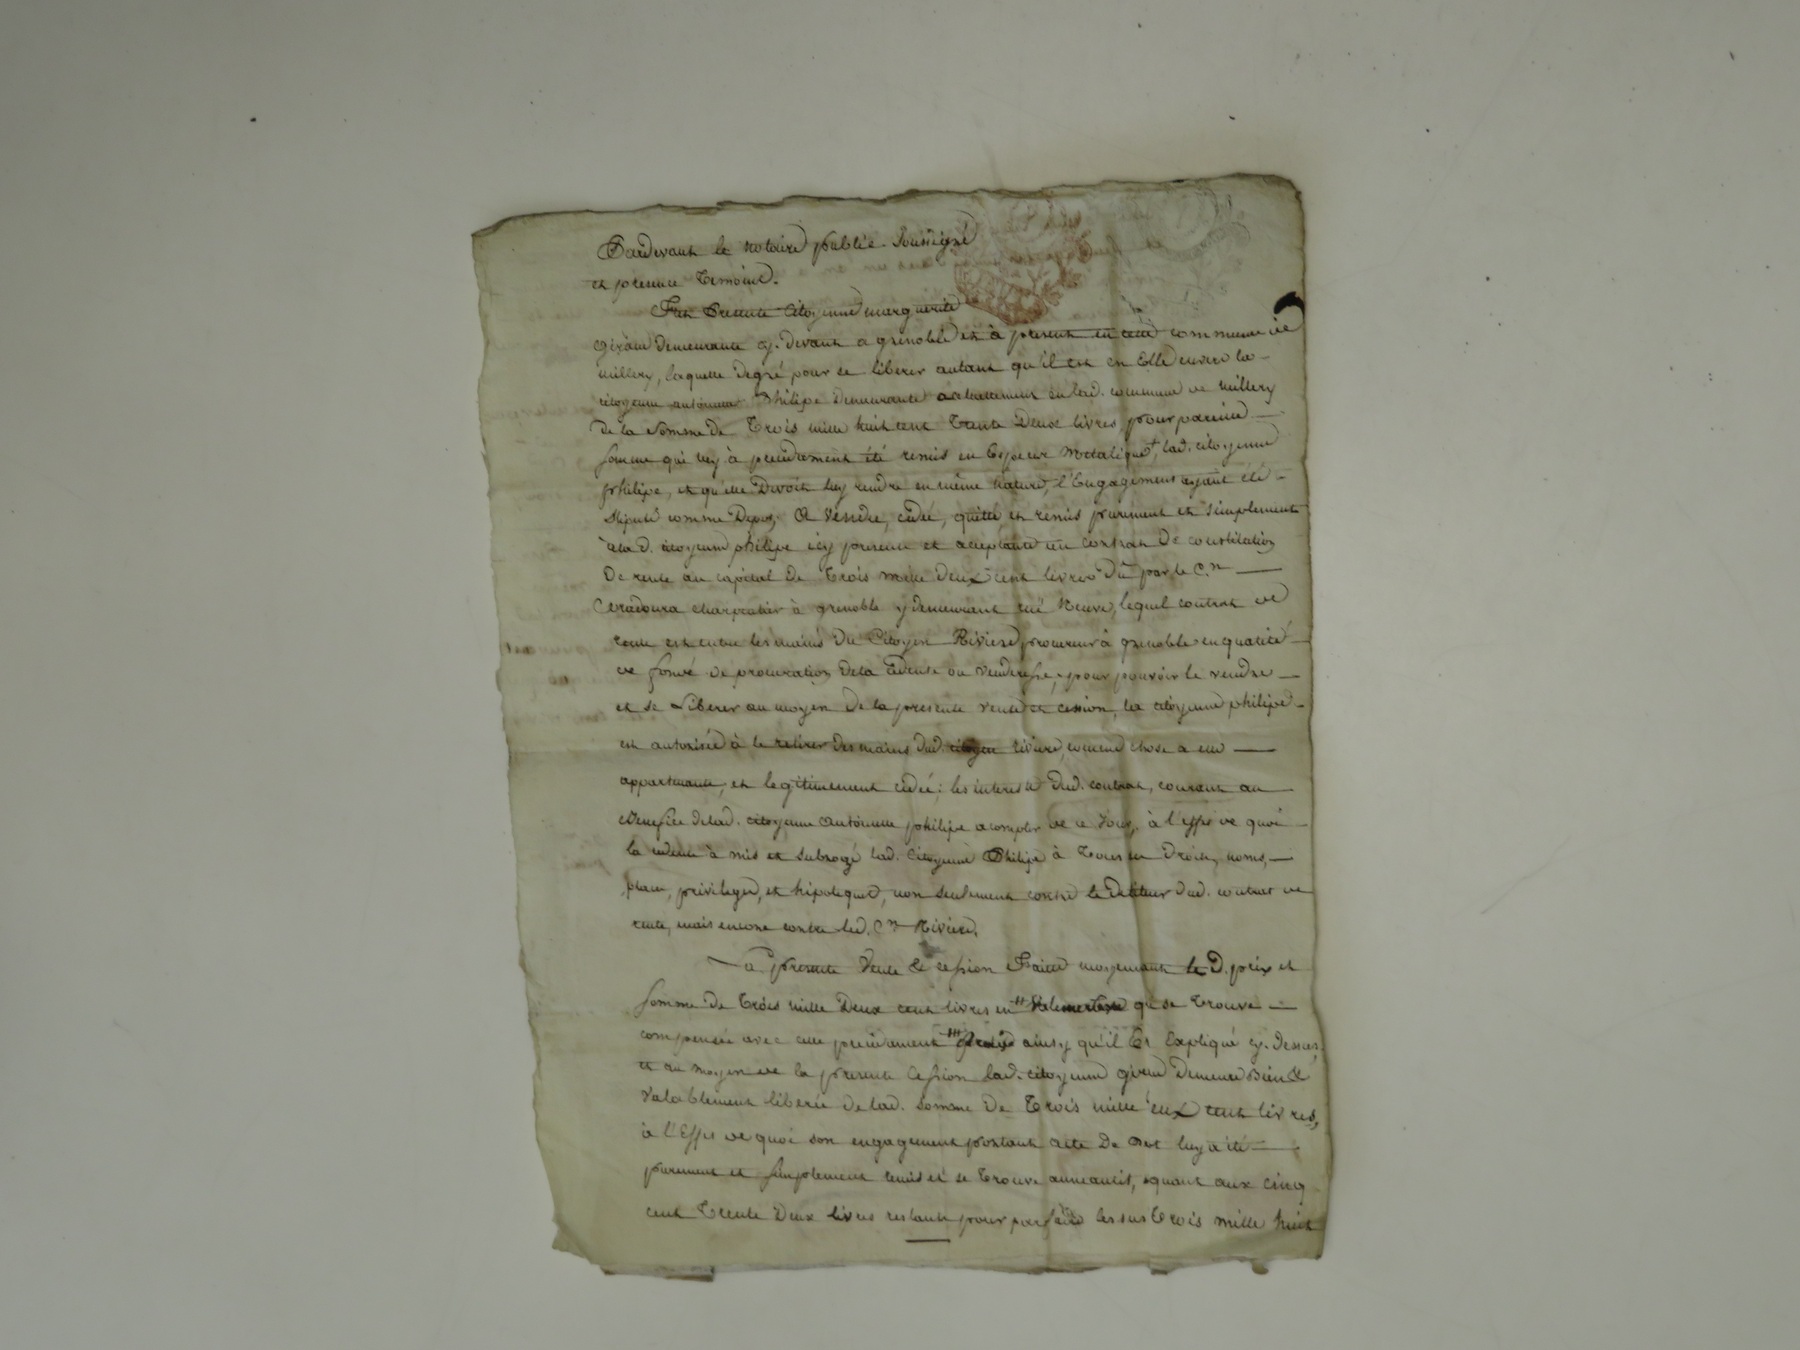 Pardevant le notaire public soussigné
et presence Temoins.
Fut Presente Citoyenne marguerite
Girard demeurante cy. devant a grenoble et à present en cette commune de
millery, laquelle degré pour se liberer autant qu'il est en Elle envers la
citoyenne antoinette Philipe demeurante actuellement en lad. commune de millery
de la Somme de Trois mille huit cent Trente Deux livres pour pareille
somme qui luy à precédament été remis en Espece Metalique lad. citoyenne
philipe, et qu'elle Devoit luy rendre en même nature, l'Engagement ayant été
stipulé comme Depos, A vendu, cédé, quitté et remis purement et simplement
à lad. citoyenne philipe icy presente et acceptante un contrat De constitution
De rente au capital de Trois mille deux cent livres Dû par le C.n
charpentier à grenoble y demeurant rue Neuve, lequel contrat de
rente est entre les mains Du Citoyen Riviere procureur à grenoble en qualité
de fondé de procuration de la cedente ou Venderesse, pour pouvoir le vendre
et se Liberer au moyen De la presente vente et cession, la citoyenne philipe
est autorisée à le retirer des mains dud. citoyen riviere, comme chose a elle
appartenante, et legitimement cédée; les interets dud. contrat, courant au
Benefice delad. citoyenne Antoinette philipe a compter de ce Jour, à l'effet de quoi
la cedente à mis et subrogé lad. Citoyenne Philipe à Tous ses Droits, noms,
places, privileges, et hipoteques, non seulement contre le Debiteur dud. contrat de
rente, mais encore contre led. C.n Riviere.
La presente Vente & cession Faitte moyennant le D. prix et
somme De Trois mille Deux cent livres en qui se Trouve
compensée avec celle precédament ainsy qu'il Est Expliqué cy. dessus,
et au moyen de la presente Cession lad. citoyenne girard Demeure Bien &
Valablement liberée de lad. somme De Trois mille deux cent livres,
à l'Effet de quoi son engagement portant acte De luy a été
purement et simplement remis et se Trouve anneantit, quant aux cinq
cent Trente Deux livres restante pour parfaire les sus Trois mille huit